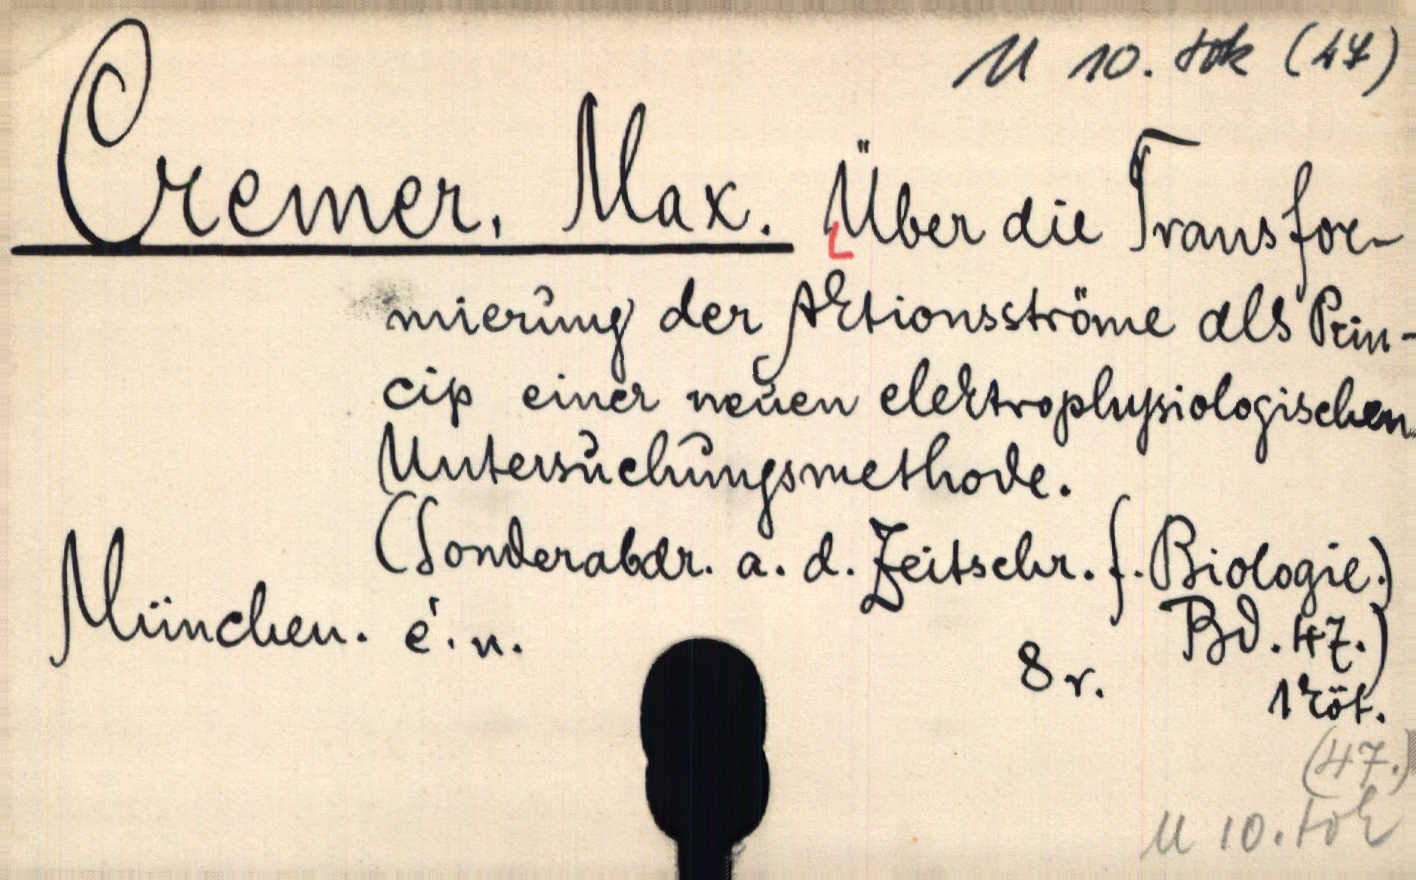 U 10. tok (47)
Cremer, Max. Über die Transfor-
mierung der Aktionsströme als Prin-
cip einer neuen elektrophysiologischen
Untersuchungsmethode.
(Sonderabdr. a. d. Zeitschr. f. Biologie.)
Bd. 47.)
München. é. n.
8 r.
1 köt.
(47.)
U 10. tok